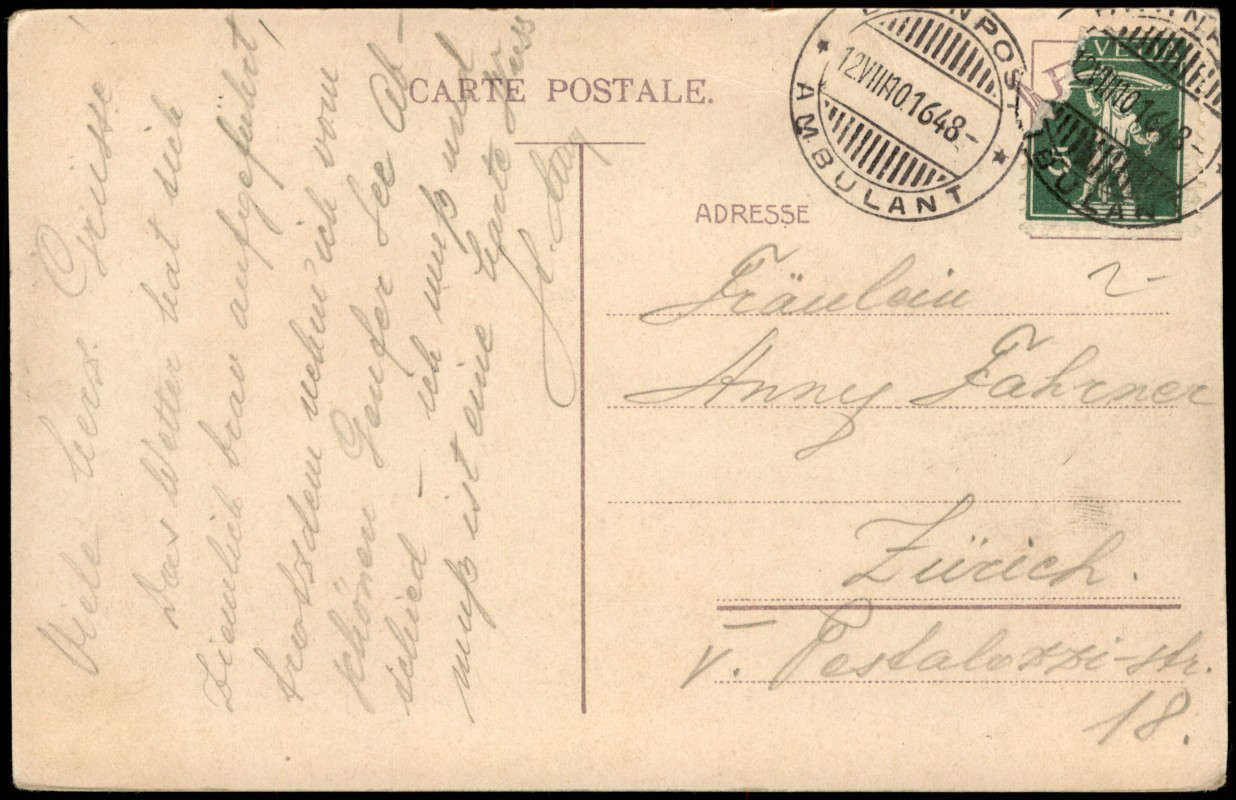 CARTE POSTALE.
ADRESSE
BAHNPOST
AMBULANT
12.VIII10.1648-
HELVETIA
5
Viele herz. Grüsse!
Das Wetter hat sich
ziemlich brav aufgeführt!
trotzdem nehm' ich vom
schönen Genfer See Ab-
schied - ich muß und
muß ist eine harte Nuss
Fräulein
Anny Fahrner
Zürich.
V. Pestalozzi-str.
18.